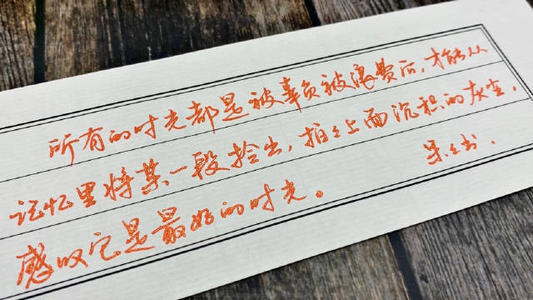 所有的时光都是被辜负被浪费后，才能从
记忆里将某一段拎出，拍拍上面沉积的灰尘，
感叹它是最好的时光。
书.